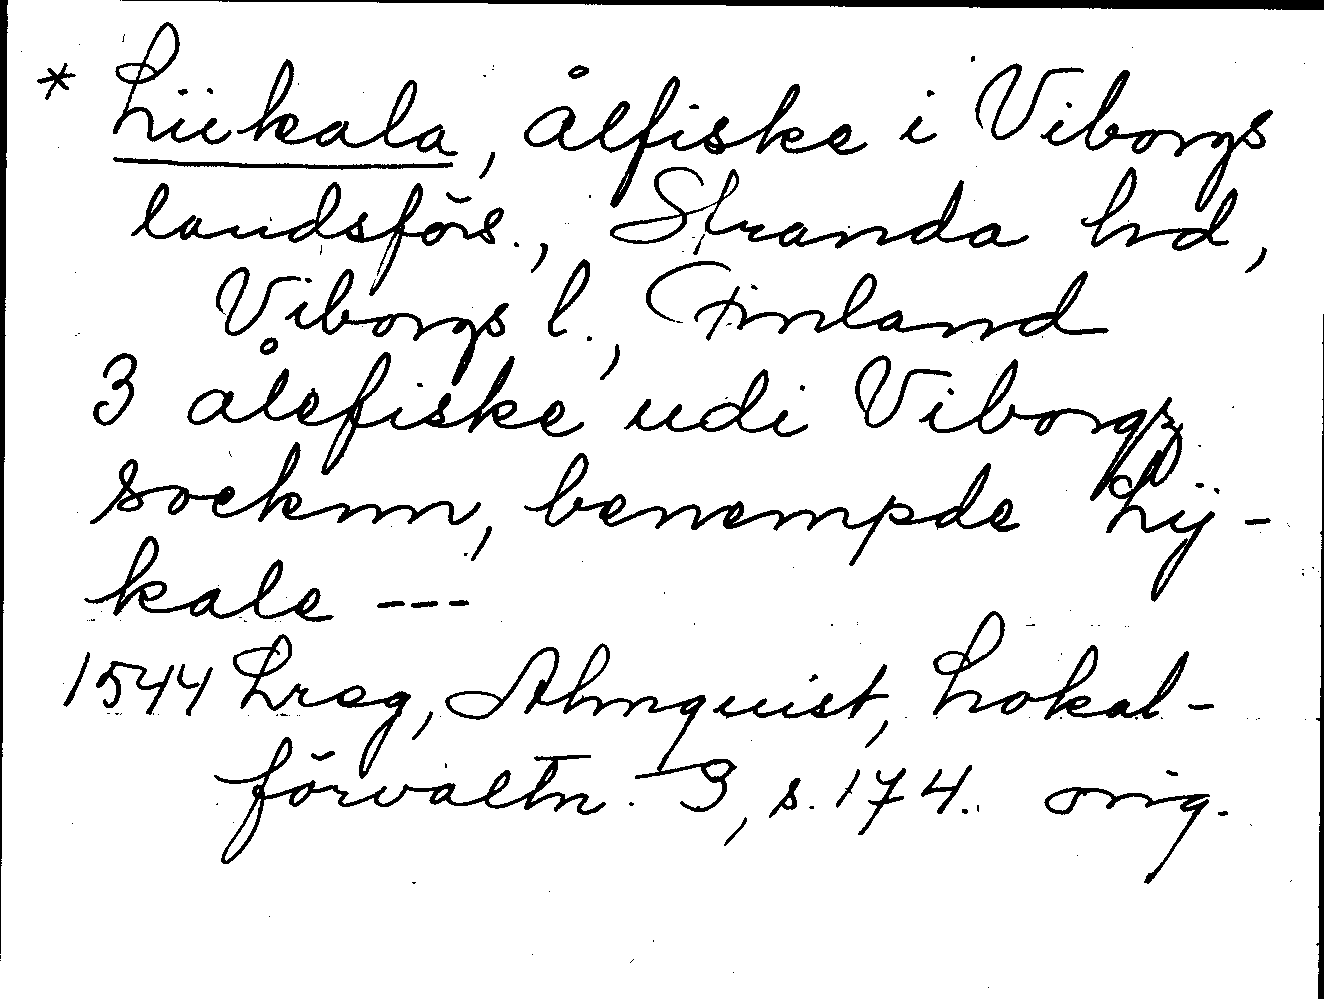 * Liikala, ålfiske i Viborgs
landsförs., Stranda hd,
Viborgs l., Finland
3 ålefiske udi Viborgz
socknn, benempde Lÿ-
kale ---
1544 Lreg, Almquist, Lokal-
förvaltn. 3, s. 174. orig.